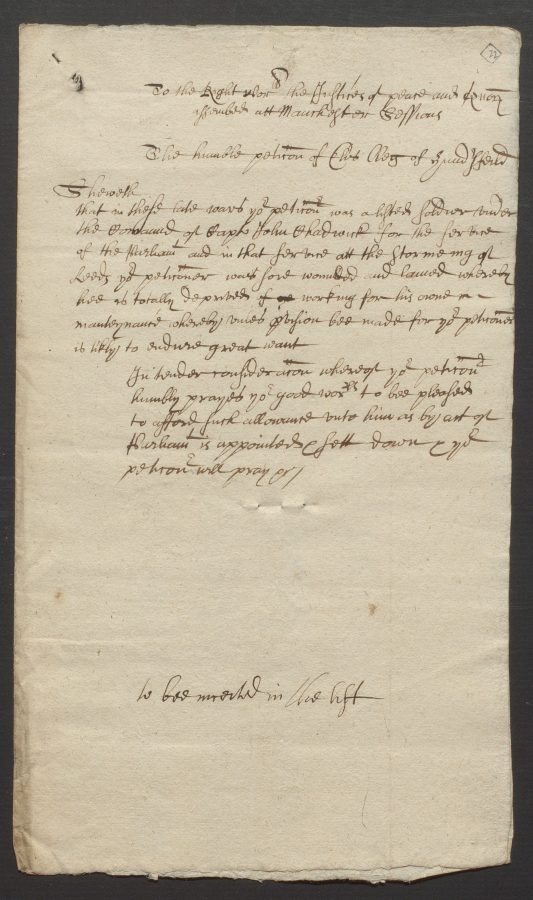 22
To the Right wor the Justices of peace and
assembled att Manchester Sessions
The humble peticon of Elis Meg of
Sheweth
that in these late wars yor peticonr was a listed soldier under
the Comaund of Capt John Chadwick for the service
of the Parliamt and in that service att the Stormeing of
Leeds yor peticoner was sore wounded and lamed whereby
hee is totally deprived of working for his owne
manteynance whereby unles pvision bee made for yor peticoner
is likly to endure great want
In tender consideracon whereof yor peticonr
humbly prayes yor good worpps to bee pleased
to afford such allowance unto him as by act of
Parliamt is appointed & sett down & yor
peticonr will pray &c
to bee incerted in the list